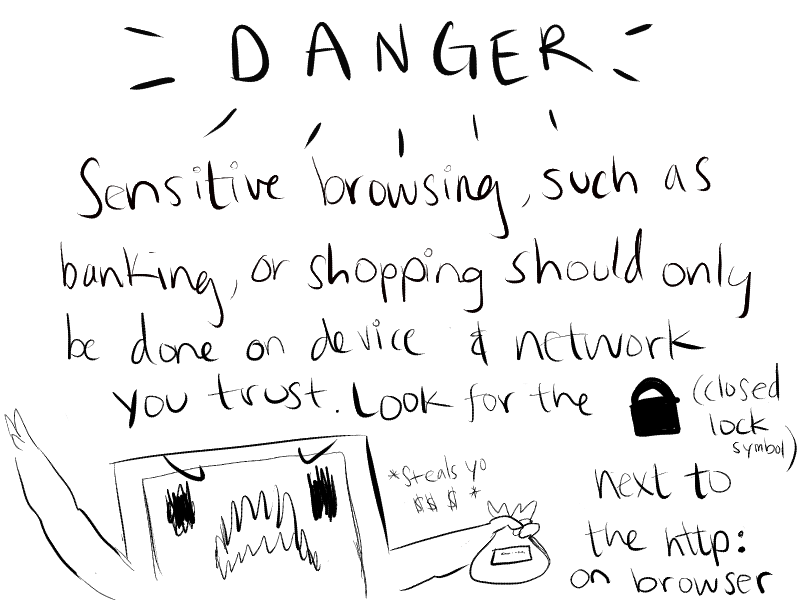 DANGER
Sensitive browsing, such as
banking, or shopping should only
be done on device & network
you trust. Look for the
(closed
lock
symbol)
*Steals yo
$$ $ *
next to
the http:
on browser